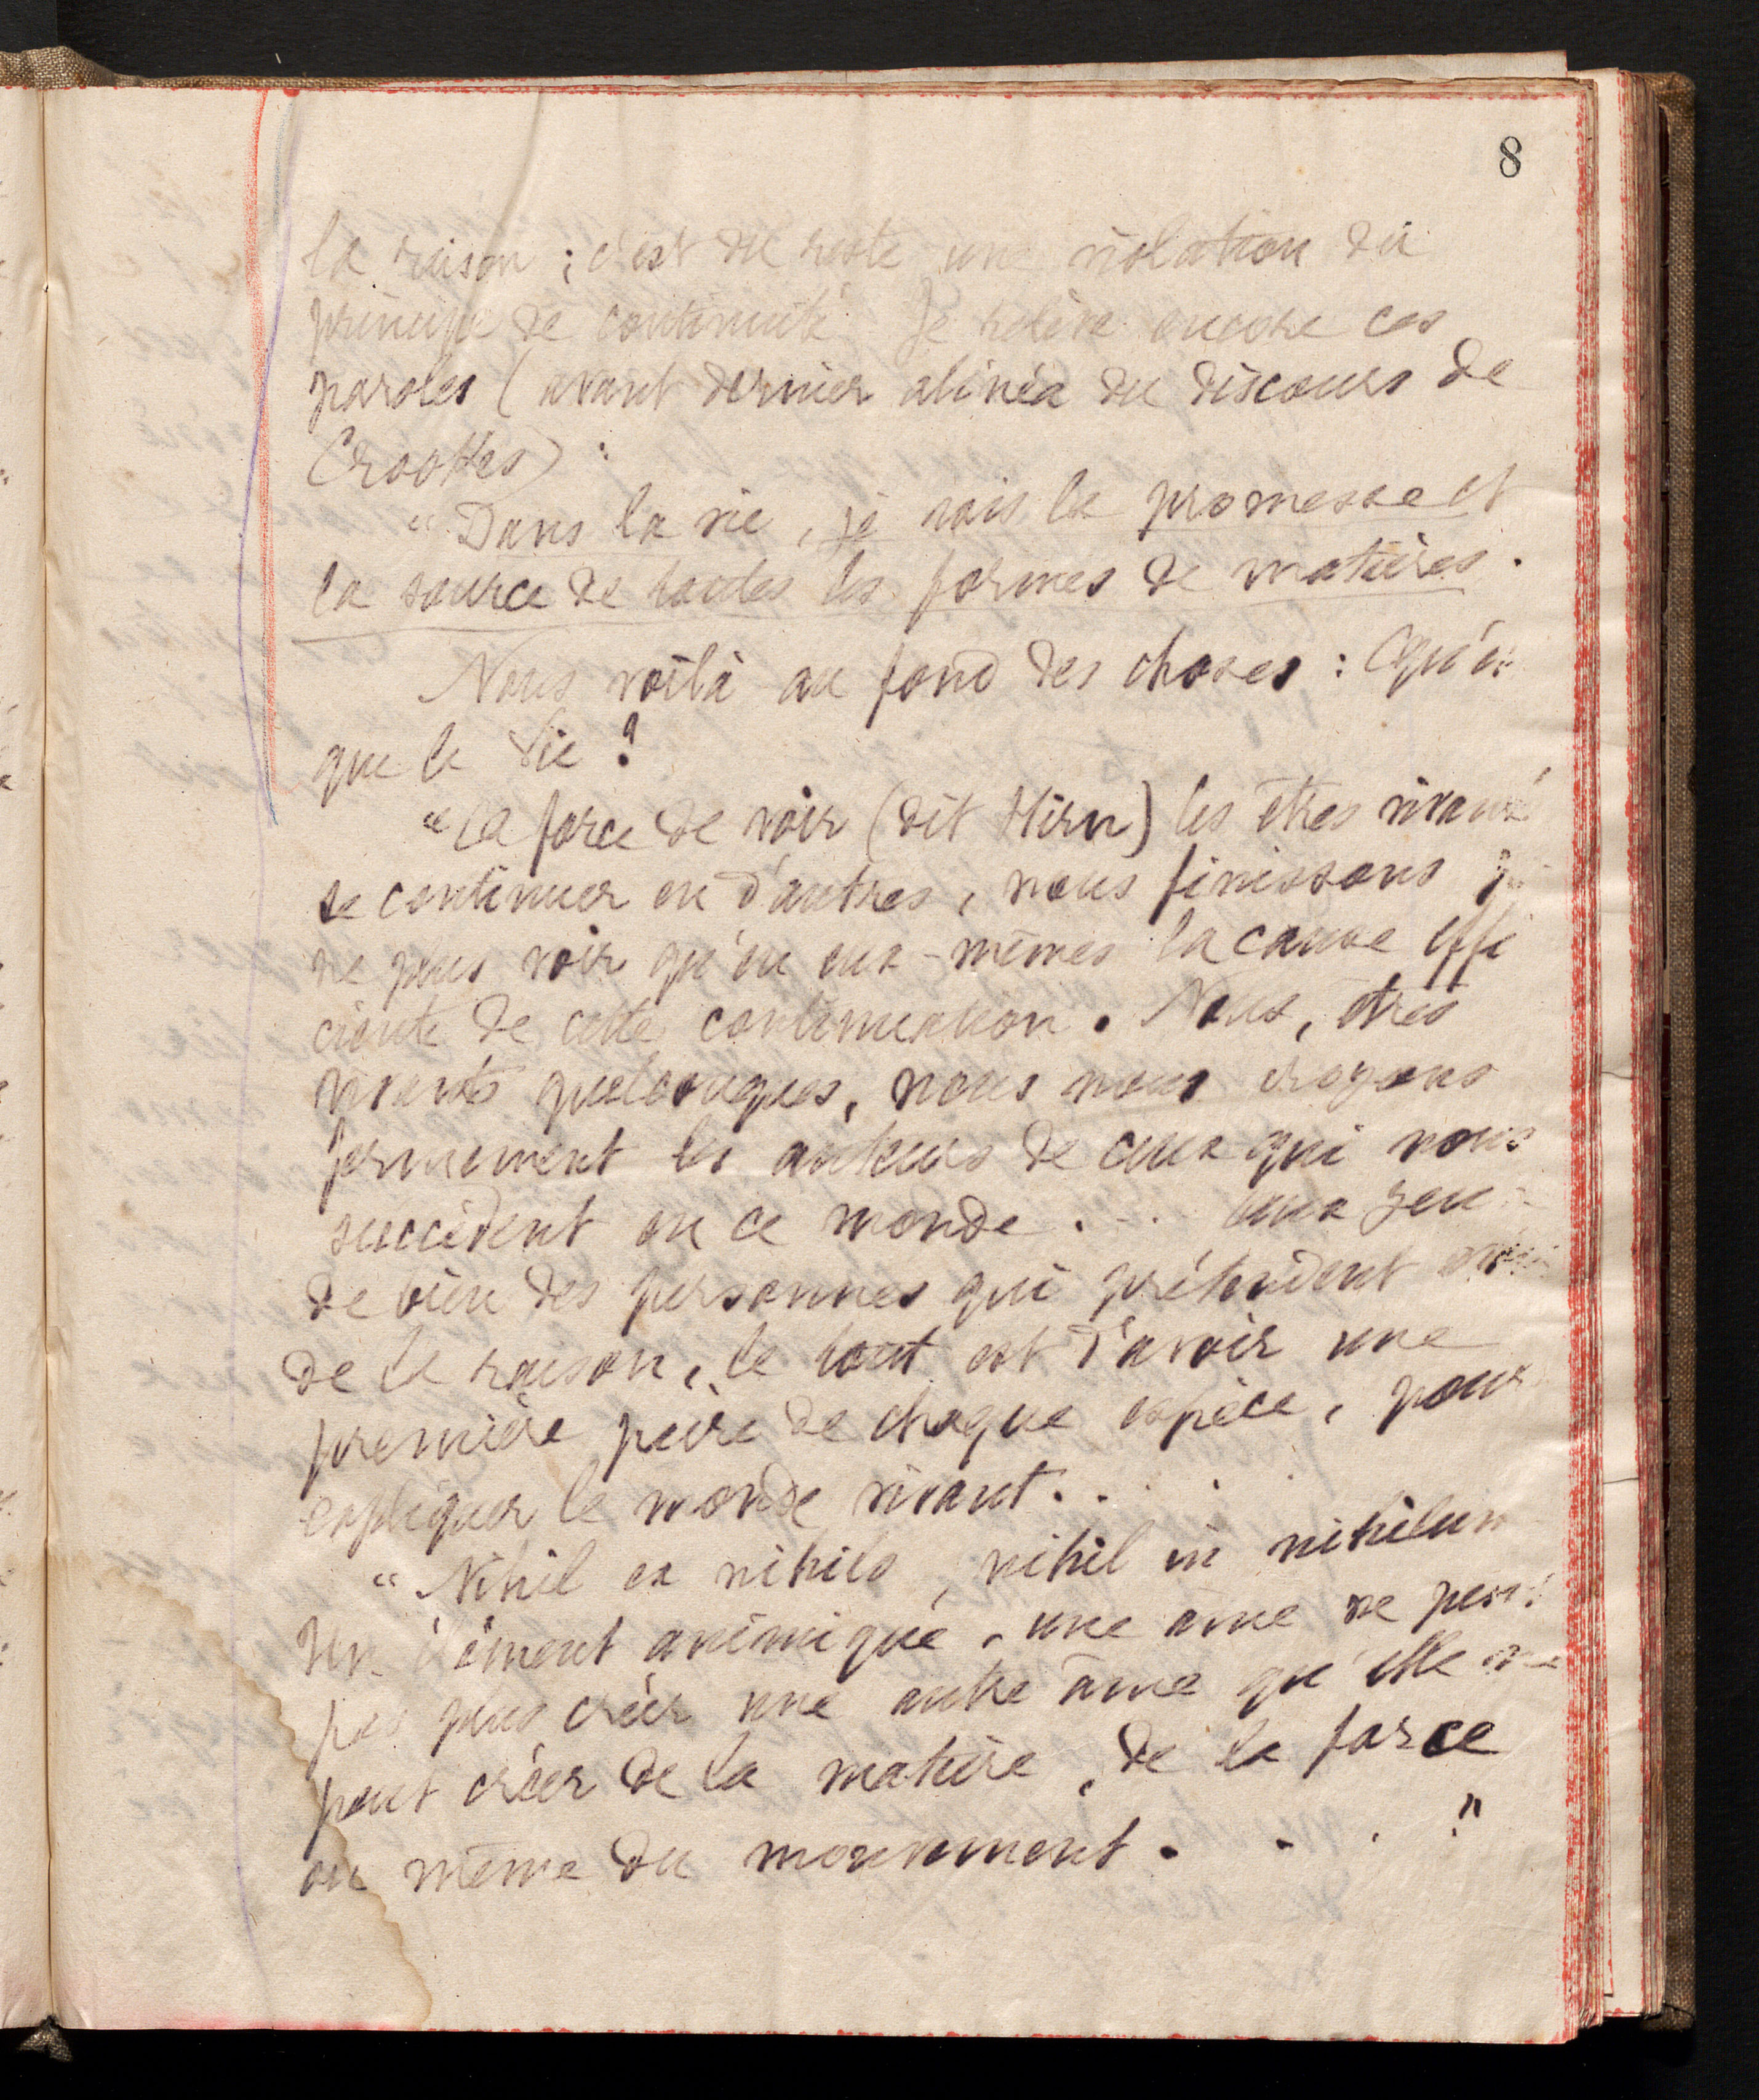 8
la raison ; c'est du reste une violation du
principe de continuité. Je relève encore ces
paroles (avant dernier alinéa du discours de
Crookes) :
"Dans la vie, je vois la promesse et
la source de toutes les formes de matières.
Nous voilà au fond des choses : Qu'e
que la Vie ?
"A force de voir (dit Hirn) les êtres vivants
se continuer en d'autres, nous finissons
ne plus voir qu'en eux-mêmes la cause effi
ciente de cette continuation. Nous, êtres
vivants quelconques, nous nous croyons
fermement les auteurs de ceux qui nous
succèdent en ce monde... aux yeux
de bien des personnes qui prétendent
de la raison, le tout est d'avoir une
première paire de chaque espèce, pour
expliquer le monde vivant...
"Nihil ex nihilo, nihil in nihilum
Un élément animique, une âme ne peut
pas plus créer une autre âme qu'elle ne
peut créer de la matière, de la force
ou même du mouvement. . . ."